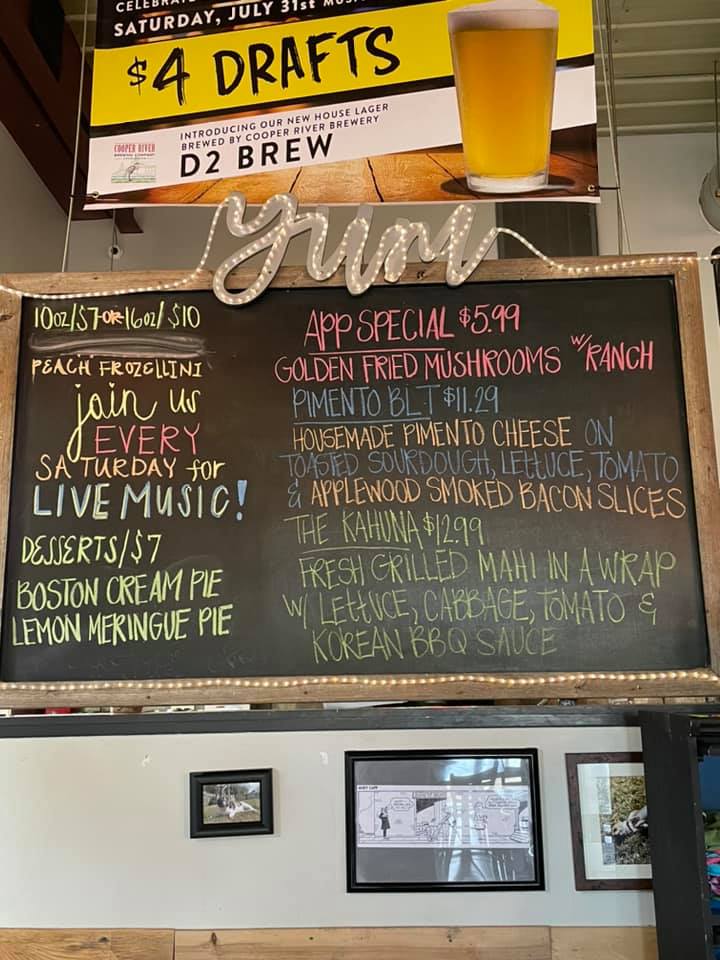 CELEBRATE
SATURDAY, JULY 31st MUSI
$4 DRAFTS
INTRODUCING OUR NEW HOUSE LAGER
BREWED BY COOPER RIVER BREWERY
D2 BREW
COOPER RIVER
BREWING COMPANY
yum
10oz/$7 OR 16oz/$10
PEACH FROZELLINI
join us
EVERY
SATURDAY for
LIVE MUSIC!
DESSERTS/$7
BOSTON CREAM PIE
LEMON MERINGUE PIE
APP SPECIAL $5.99
GOLDEN FRIED MUSHROOMS W/RANCH
PIMENTO BLT $11.29
HOUSEMADE PIMENTO CHEESE ON
TOASTED SOURDOUGH, LETTUCE, TOMATO
& APPLEWOOD SMOKED BACON SLICES
THE KAHUNA $12.99
FRESH GRILLED MAHI IN A WRAP
W/ LETTUCE, CABBAGE, TOMATO &
KOREAN BBQ SAUCE
ANDY CAPP